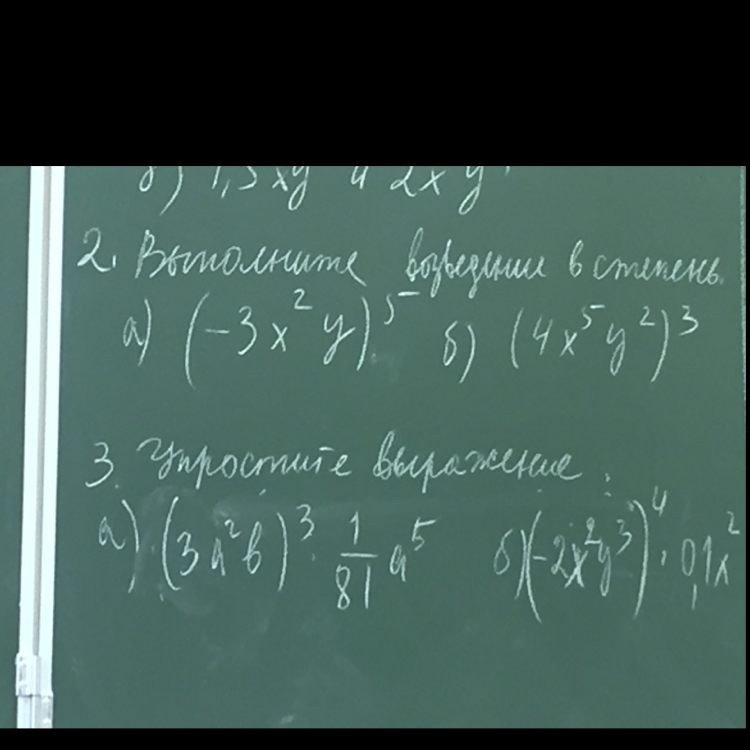 б) 1,5xy и 2x y
2. Выполните возведение в степень.
а) (-3x²y)⁵ б) (4x⁵y²)³
3. Упростите выражение:
а) (3a²b)³ · 1/81 a⁵ б) (-2x²y³)⁴ · 0,1x²